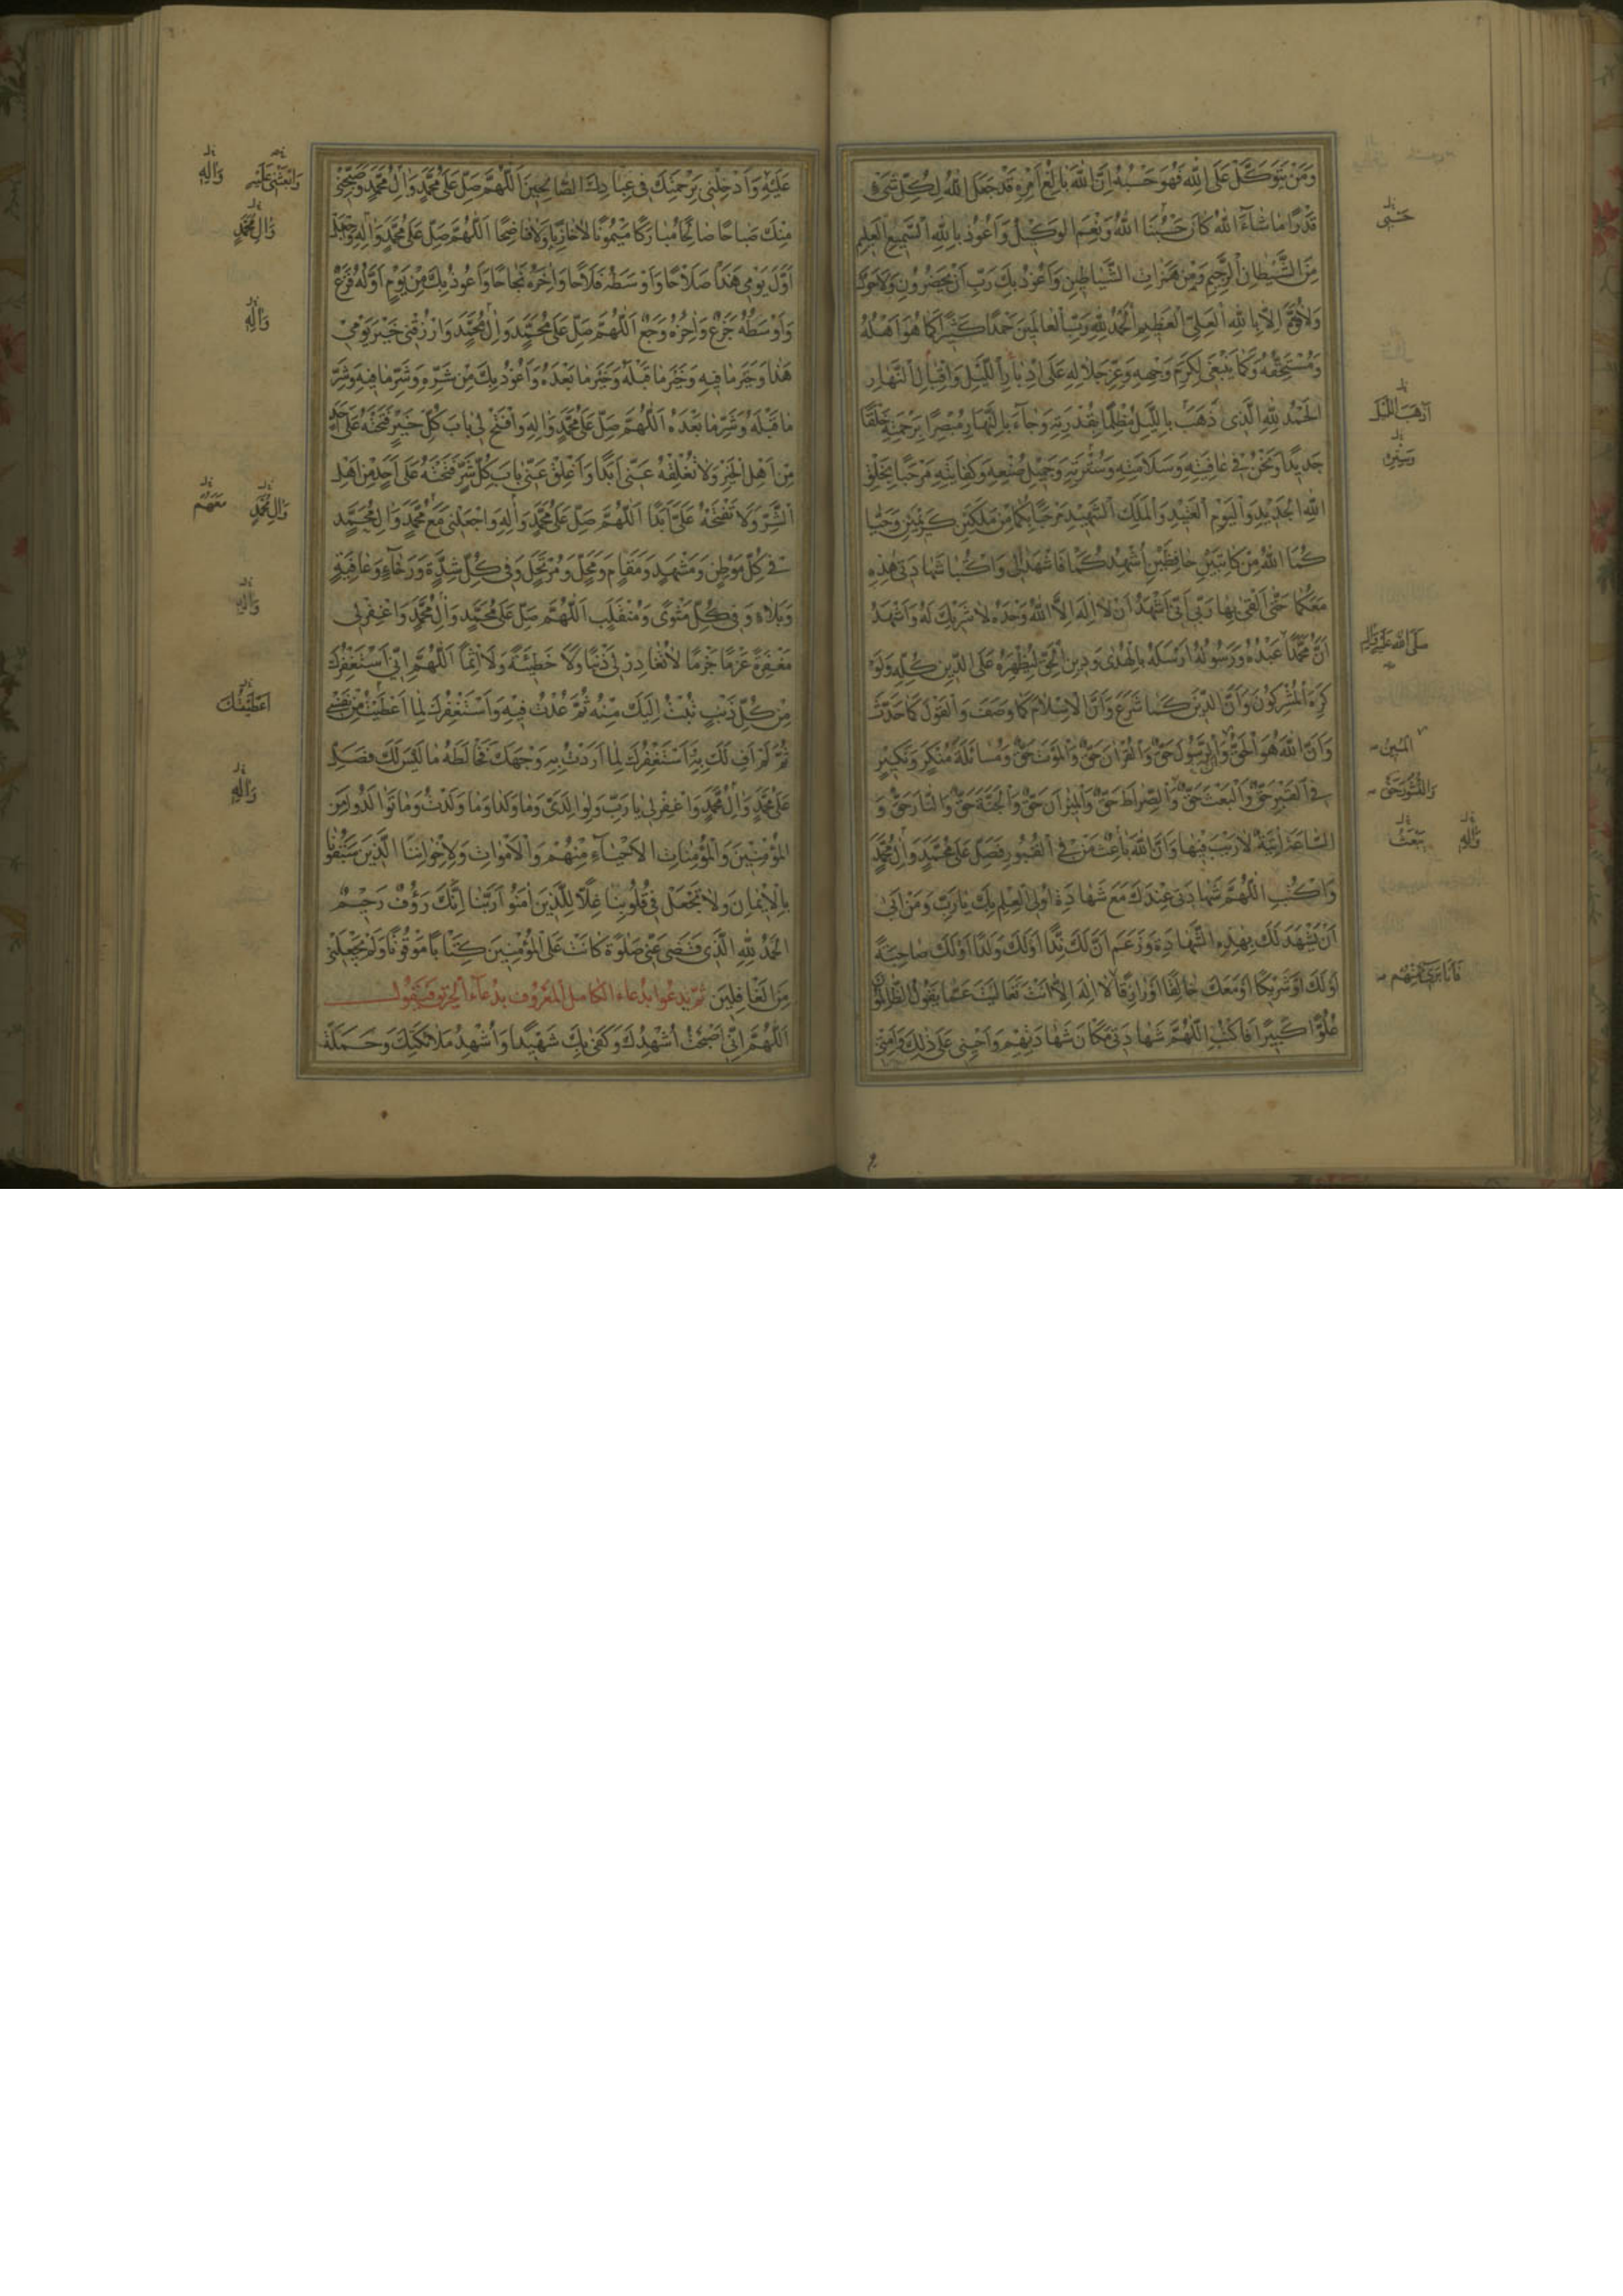 وَمَنْ يَتَوَكَّلْ عَلَى اللّٰهِ فَهُوَ حَسْبُهُ اِنَّ اللّٰهَ بَالِغُ اَمْرِهِ قَدْ جَعَلَ اللّٰهُ لِكُلِّ شَيْءٍ
قَدْرًا مَا شَاءَ اللّٰهُ كَانَ حَسْبُنَا اللّٰهُ وَنِعْمَ الْوَكِيلُ وَاَعُوذُ بِاللّٰهِ السَّمِيعِ الْعَلِيمِ
حَسْبِيَ
مِنَ الشَّيْطَانِ الرَّجِيمِ وَمِنْ هَمَزَاتِ الشَّيَاطِينِ وَاَعُوذُ بِكَ رَبِّ اَنْ يَحْضُرُونِ وَلَا حَوْلَ
وَلَا قُوَّةَ اِلَّا بِاللّٰهِ الْعَلِيِّ الْعَظِيمِ اَلْحَمْدُ لِلّٰهِ رَبِّ الْعَالَمِينَ حَمْدًا كَثِيرًا كَمَا هُوَ اَهْلُهُ
وَمُسْتَحِقُّهُ وَكَمَا يَنْبَغِي لِكَرَمِ وَجْهِهِ وَعِزِّ جَلَالِهِ عَلَى اِدْبَارِ اللَّيْلِ وَاِقْبَالِ النَّهَارِ
اَلْحَمْدُ لِلّٰهِ الَّذِي ذَهَبَ بِاللَّيْلِ مُظْلِمًا بِقُدْرَتِهِ وَجَاءَ بِالنَّهَارِ مُبْصِرًا بِرَحْمَتِهِ خَلْقًا
اَذْهَبَ اللَّيْلَ
جَدِيدًا وَنَحْنُ فِي عَافِيَتِهِ وَسَلَامَتِهِ وَسُتْرَتِهِ وَجَمِيلِ صُنْعِهِ وَكِفَايَتِهِ مَرْحَبًا بِخَلْقِ
وَسِتْرِهِ
اللّٰهِ الْجَدِيدِ وَالْيَوْمِ الْعَتِيدِ وَالْمَلَكِ الشَّهِيدِ مَرْحَبًا بِكُمَا مِنْ مَلَكَيْنِ كَرِيمَيْنِ وَحَيَّا
كُمَا اللّٰهُ مِنْ كَاتِبَيْنِ حَافِظَيْنِ اُشْهِدُكُمَا فَاشْهَدَا لِي وَاكْتُبَا شَهَادَتِي هٰذِهِ
مَعَكُمَا حَتَّى اَلْقَى بِهَا رَبِّي اَنِّي اَشْهَدُ اَنْ لَا اِلٰهَ اِلَّا اللّٰهُ وَحْدَهُ لَا شَرِيكَ لَهُ وَاَشْهَدُ
اَنَّ مُحَمَّدًا عَبْدُهُ وَرَسُولُهُ اَرْسَلَهُ بِالْهُدَى وَدِينِ الْحَقِّ لِيُظْهِرَهُ عَلَى الدِّينِ كُلِّهِ وَلَوْ
صَلَّى اللّٰهُ عَلَيْهِ وَاٰلِهِ
كَرِهَ الْمُشْرِكُونَ وَاَنَّ الدِّينَ كَمَا شَرَعَ وَاَنَّ الْاِسْلَامَ كَمَا وَصَفَ وَالْقَوْلَ كَمَا حَدَّثَ
وَاَنَّ اللّٰهَ هُوَ الْحَقُّ وَاَنَّ الرَّسُولَ حَقٌّ وَالْقُرْاٰنَ حَقٌّ وَالْمَوْتَ حَقٌّ وَمُسَائَلَةَ مُنْكَرٍ وَنَكِيرٍ
الْمُبِينُ
فِي الْقَبْرِ حَقٌّ وَالْبَعْثَ حَقٌّ وَالصِّرَاطَ حَقٌّ وَالْمِيزَانَ حَقٌّ وَالْجَنَّةَ حَقٌّ وَالنَّارَ حَقٌّ وَ
وَالنُّشُورَ حَقٌّ
السَّاعَةَ اٰتِيَةٌ لَا رَيْبَ فِيهَا وَاَنَّ اللّٰهَ بَاعِثُ مَنْ فِي الْقُبُورِ فَصَلِّ عَلَى مُحَمَّدٍ وَاٰلِ مُحَمَّدٍ
يَبْعَثُ
وَاٰلِهِ
وَاكْتُبِ اللّٰهُمَّ شَهَادَتِي عِنْدَكَ مَعَ شَهَادَةِ اُولِي الْعِلْمِ بِكَ يَا رَبِّ وَمَنْ اَبَى
اَنْ يَشْهَدَ لَكَ بِهٰذِهِ الشَّهَادَةِ وَزَعَمَ اَنَّ لَكَ نِدًّا اَوْ لَكَ وَلَدًا اَوْ لَكَ صَاحِبَةً
اَوْ لَكَ شَرِيكًا اَوْ مَعَكَ خَالِقًا اَوْ رَازِقًا لَا اِلٰهَ اِلَّا اَنْتَ تَعَالَيْتَ عَمَّا يَقُولُ الظَّالِمُونَ
فَاَنَا بَرِيءٌ مِنْهُمْ
عُلُوًّا كَبِيرًا فَاكْتُبِ اللّٰهُمَّ شَهَادَتِي مَكَانَ شَهَادَتِهِمْ وَاَحْيِنِي عَلَى ذٰلِكَ وَاَمِتْنِي
عَلَيْهِ وَاَدْخِلْنِي بِرَحْمَتِكَ فِي عِبَادِكَ الصَّالِحِينَ اَللّٰهُمَّ صَلِّ عَلَى مُحَمَّدٍ وَاٰلِ مُحَمَّدٍ وَصَبِّحْنِي
وَابْعَثْنِي عَلَيْهِ
وَاٰلِهِ
مِنْكَ صَبَاحًا صَالِحًا مُبَارَكًا مَيْمُونًا لَا خَازِيًا وَلَا فَاضِحًا اَللّٰهُمَّ صَلِّ عَلَى مُحَمَّدٍ وَاٰلِهِ وَاجْعَلْ
وَاٰلِ مُحَمَّدٍ
اَوَّلَ يَوْمِي هٰذَا صَلَاحًا وَاَوْسَطَهُ فَلَاحًا وَاٰخِرَهُ نَجَاحًا وَاَعُوذُ بِكَ مِنْ يَوْمٍ اَوَّلُهُ فَزَعٌ
وَاَوْسَطُهُ جَزَعٌ وَاٰخِرُهُ وَجَعٌ اَللّٰهُمَّ صَلِّ عَلَى مُحَمَّدٍ وَاٰلِ مُحَمَّدٍ وَارْزُقْنِي خَيْرَ يَوْمِي
وَاٰلِهِ
هٰذَا وَخَيْرَ مَا فِيهِ وَخَيْرَ مَا قَبْلَهُ وَخَيْرَ مَا بَعْدَهُ وَاَعُوذُ بِكَ مِنْ شَرِّهِ وَشَرِّ مَا فِيهِ وَشَرِّ
مَا قَبْلَهُ وَشَرِّ مَا بَعْدَهُ اَللّٰهُمَّ صَلِّ عَلَى مُحَمَّدٍ وَاٰلِهِ وَافْتَحْ لِي بَابَ كُلِّ خَيْرٍ فَتَحْتَهُ عَلَى اَحَدٍ
مِنْ اَهْلِ الْخَيْرِ وَلَا تُغْلِقْهُ عَنِّي اَبَدًا وَاَغْلِقْ عَنِّي بَابَ كُلِّ شَرٍّ فَتَحْتَهُ عَلَى اَحَدٍ مِنْ اَهْلِ
الشَّرِّ وَلَا تَفْتَحْهُ عَلَيَّ اَبَدًا اَللّٰهُمَّ صَلِّ عَلَى مُحَمَّدٍ وَاٰلِهِ وَاجْعَلْنِي مَعَ مُحَمَّدٍ وَاٰلِ مُحَمَّدٍ
وَاٰلِ مُحَمَّدٍ
مَعَهُمْ
فِي كُلِّ مَوْطِنٍ وَمَشْهَدٍ وَمَقَامٍ وَمَحَلٍّ وَمُرْتَحَلٍ وَفِي كُلِّ شِدَّةٍ وَرَخَاءٍ وَعَافِيَةٍ
وَبَلَاءٍ وَفِي كُلِّ مَثْوًى وَمُنْقَلَبٍ اَللّٰهُمَّ صَلِّ عَلَى مُحَمَّدٍ وَاٰلِ مُحَمَّدٍ وَاغْفِرْ لِي
وَاٰلِهِ
مَغْفِرَةً عَزْمًا جَزْمًا لَا تُغَادِرُ لِي ذَنْبًا وَلَا خَطِيئَةً وَلَا اِثْمًا اَللّٰهُمَّ اِنِّي اَسْتَغْفِرُكَ
مِنْ كُلِّ ذَنْبٍ تُبْتُ اِلَيْكَ مِنْهُ ثُمَّ عُدْتُ فِيهِ وَاَسْتَغْفِرُكَ لِمَا اَعْطَيْتُ مِنْ نَفْسِي
اَعْطَيْتُكَ
ثُمَّ لَمْ اَفِ لَكَ بِهِ وَاَسْتَغْفِرُكَ لِمَا اَرَدْتُ بِهِ وَجْهَكَ فَخَالَطَهُ مَا لَيْسَ لَكَ فَصَلِّ
عَلَى مُحَمَّدٍ وَاٰلِ مُحَمَّدٍ وَاغْفِرْ لِي يَا رَبِّ وَلِوَالِدَيَّ وَمَا وَلَدَا وَمَا وَلَدْتُ وَمَا تَوَالَدُوا مِنَ
وَاٰلِهِ
الْمُؤْمِنِينَ وَالْمُؤْمِنَاتِ الْاَحْيَاءِ مِنْهُمْ وَالْاَمْوَاتِ وَلِاِخْوَانِنَا الَّذِينَ سَبَقُونَا
بِالْاِيمَانِ وَلَا تَجْعَلْ فِي قُلُوبِنَا غِلًّا لِلَّذِينَ اٰمَنُوا رَبَّنَا اِنَّكَ رَؤُفٌ رَحِيمٌ
اَلْحَمْدُ لِلّٰهِ الَّذِي قَضَى عَنِّي صَلٰوةً كَانَتْ عَلَى الْمُؤْمِنِينَ كِتَابًا مَوْقُوتًا وَلَمْ يَجْعَلْنِي
مِنَ الْغَافِلِينَ ثم يدعوا بدعاء الكامل المعروف بدعاء الحريق فيقول
اَللّٰهُمَّ اِنِّي اَصْبَحْتُ اُشْهِدُكَ وَكَفَى بِكَ شَهِيدًا وَاُشْهِدُ مَلَائِكَتَكَ وَحَمَلَةَ